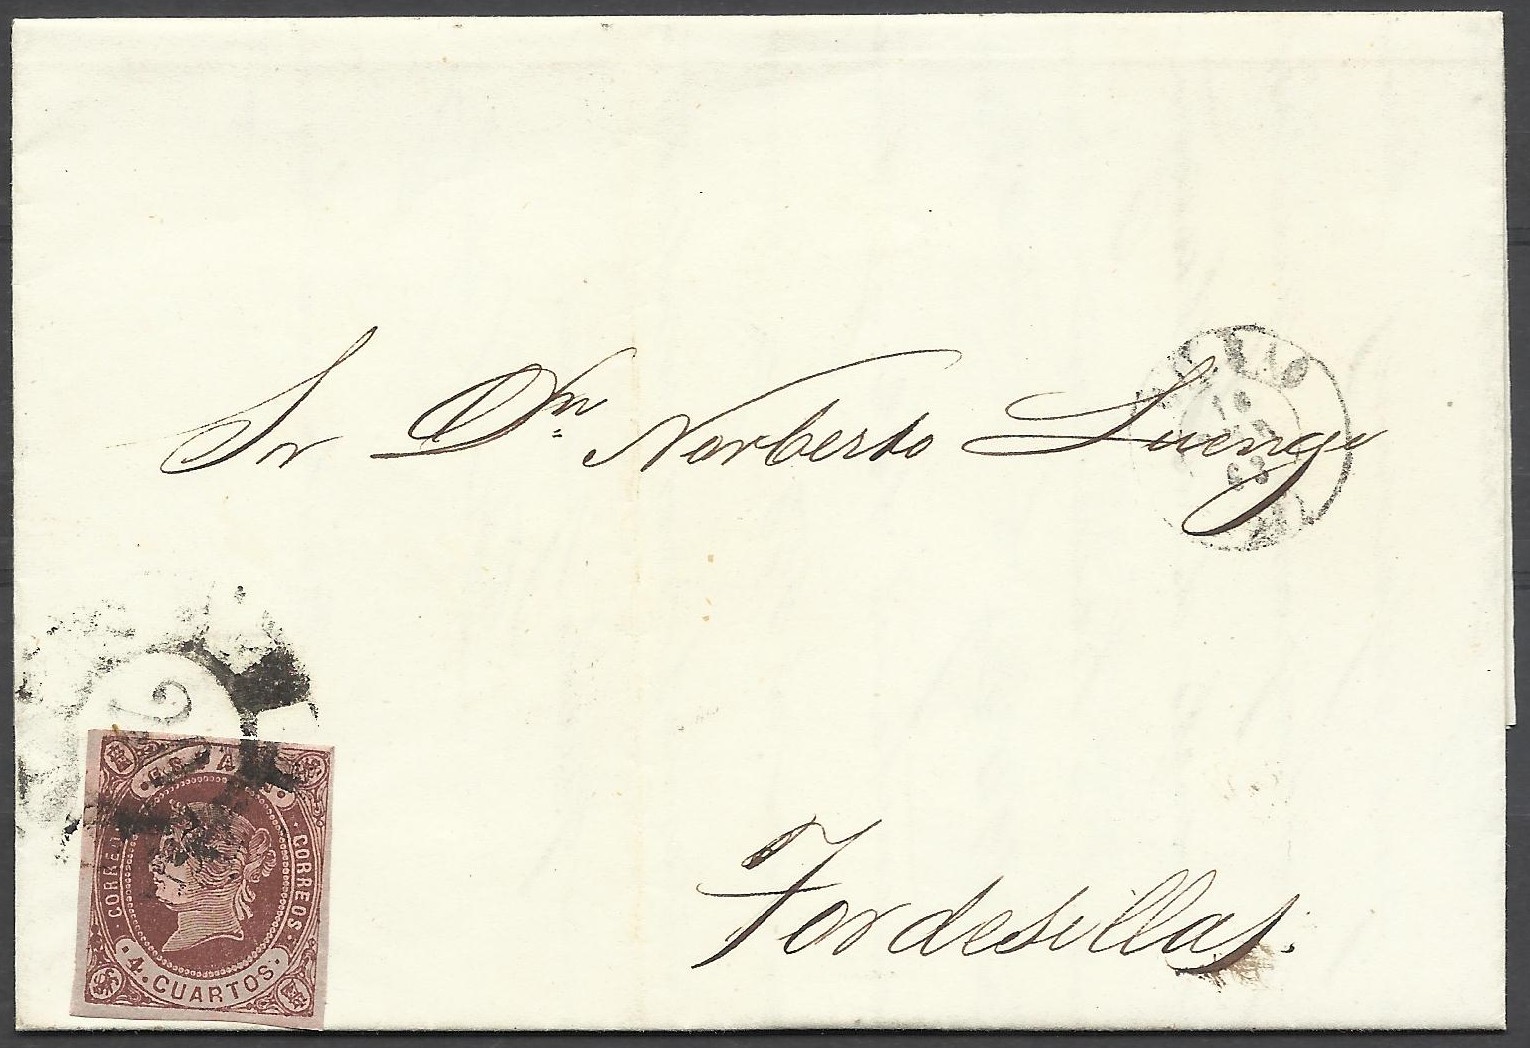 Sr Dn Norberto Luengo
BILBAO
10
63
Tordesillas.
ESPAÑA
CORREOS
CORREOS
4. CUARTOS.